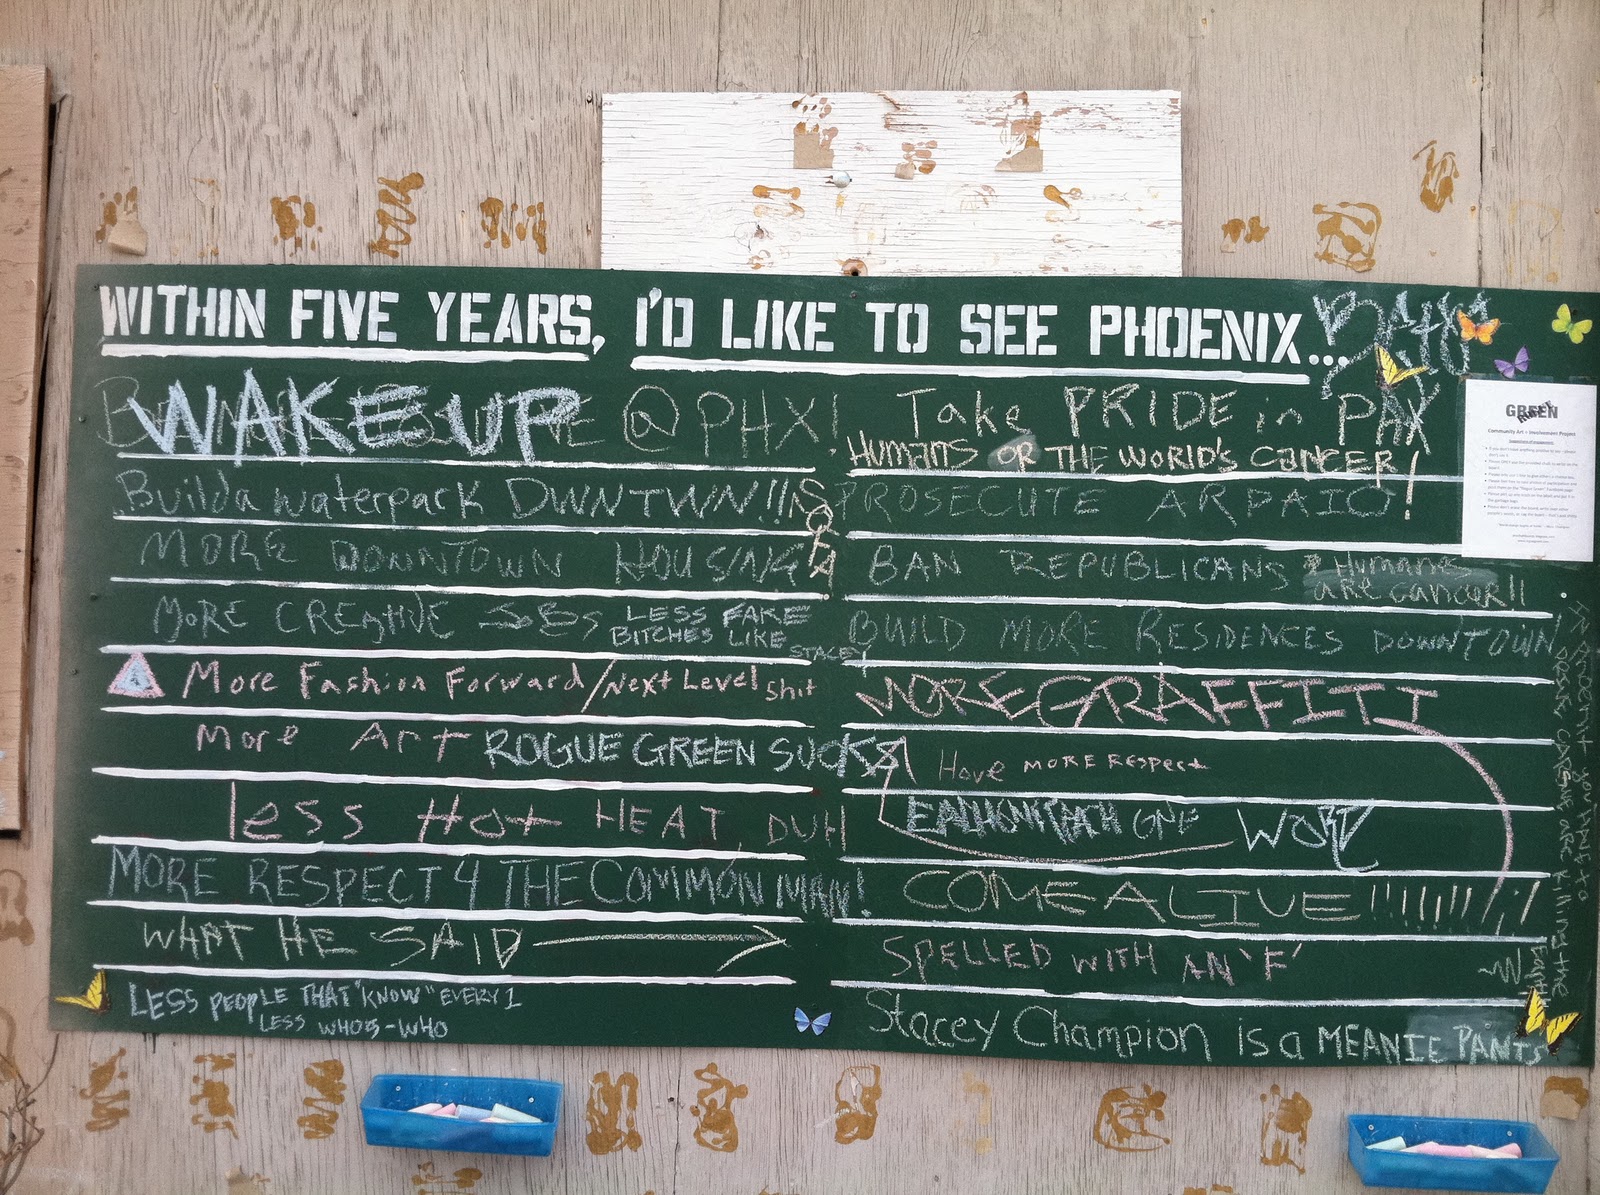 WITHIN FIVE YEARS, I'D LIKE TO SEE PHOENIX...
WAKE UP @ PHX!
Build a waterpark DWNTWN!!
MORE DOWNTOWN HOUSING
MORE CREATIVE JOBS LESS FAKE
BITCHES LIKE
STACEY
More Fashion Forward/Next Level shit
More Art ROGUE GREEN SUCKS
less Hot HEAT, DUH
MORE RESPECT 4 THE COMMON MAN!
WHAT HE SAID
LESS PEOPLE THAT "KNOW" EVERY 1
LESS WHO'S-WHO
Take PRIDE in PHX
HUMANS OR THE WORLD'S CANCER!
PROSECUTE ARPAIO
BAN REPUBLICANS Humans
are cancer!!
BUILD MORE RESIDENCES DOWNTOWN
MORE GRAFFITI
Have MORE RESPECT
WORD
COME ALIVE!!!!!!!!!
SPELLED WITH AN 'F'
Stacey Champion is a MEANIE PANTS
GREEN
Community Art + Involvement Project